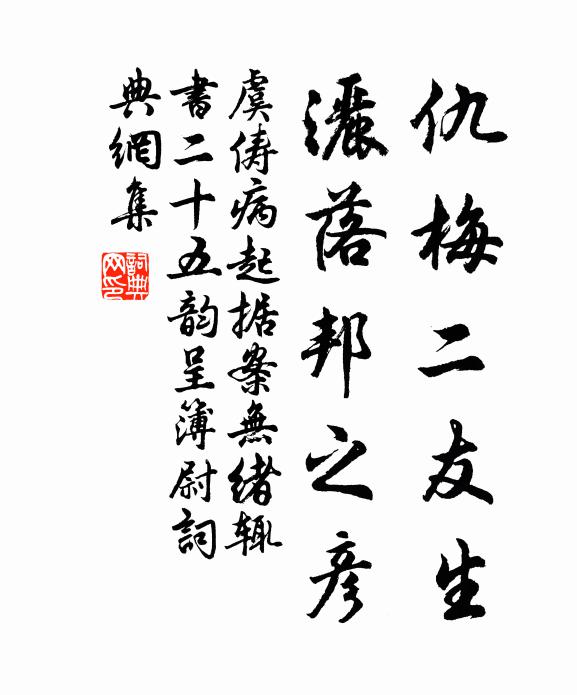 仇梅二友生
灑落邦之彥
虞儔病起据案無緒輒
書二十五韵呈簿尉詞
典網集
詞典網印